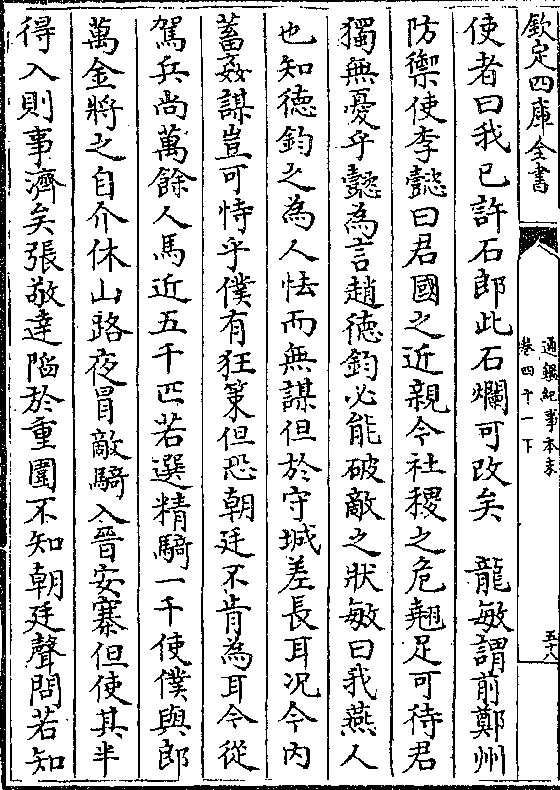 欽定四庫全書
通鑑紀事本末
卷四十一下
五十八
使者曰我已許石郎此石爛可改矣　龍敏謂前鄭州
防禦使李懿曰君國之近親今社稷之危翹足可待君
獨無憂乎懿為言趙德鈞必能破敵之狀敏曰我燕人
也知德鈞之為人怯而無謀但於守城差長耳况今内
蓄姦謀豈可恃乎僕有狂策但恐朝廷不肯為耳今從
駕兵尚萬餘人馬近五千匹若選精騎一千使僕與郎
萬金將之自介休山路夜冒敵騎入晉安寨但使其半
得入則事濟矣張敬達陷於重圍不知朝廷聲問若知